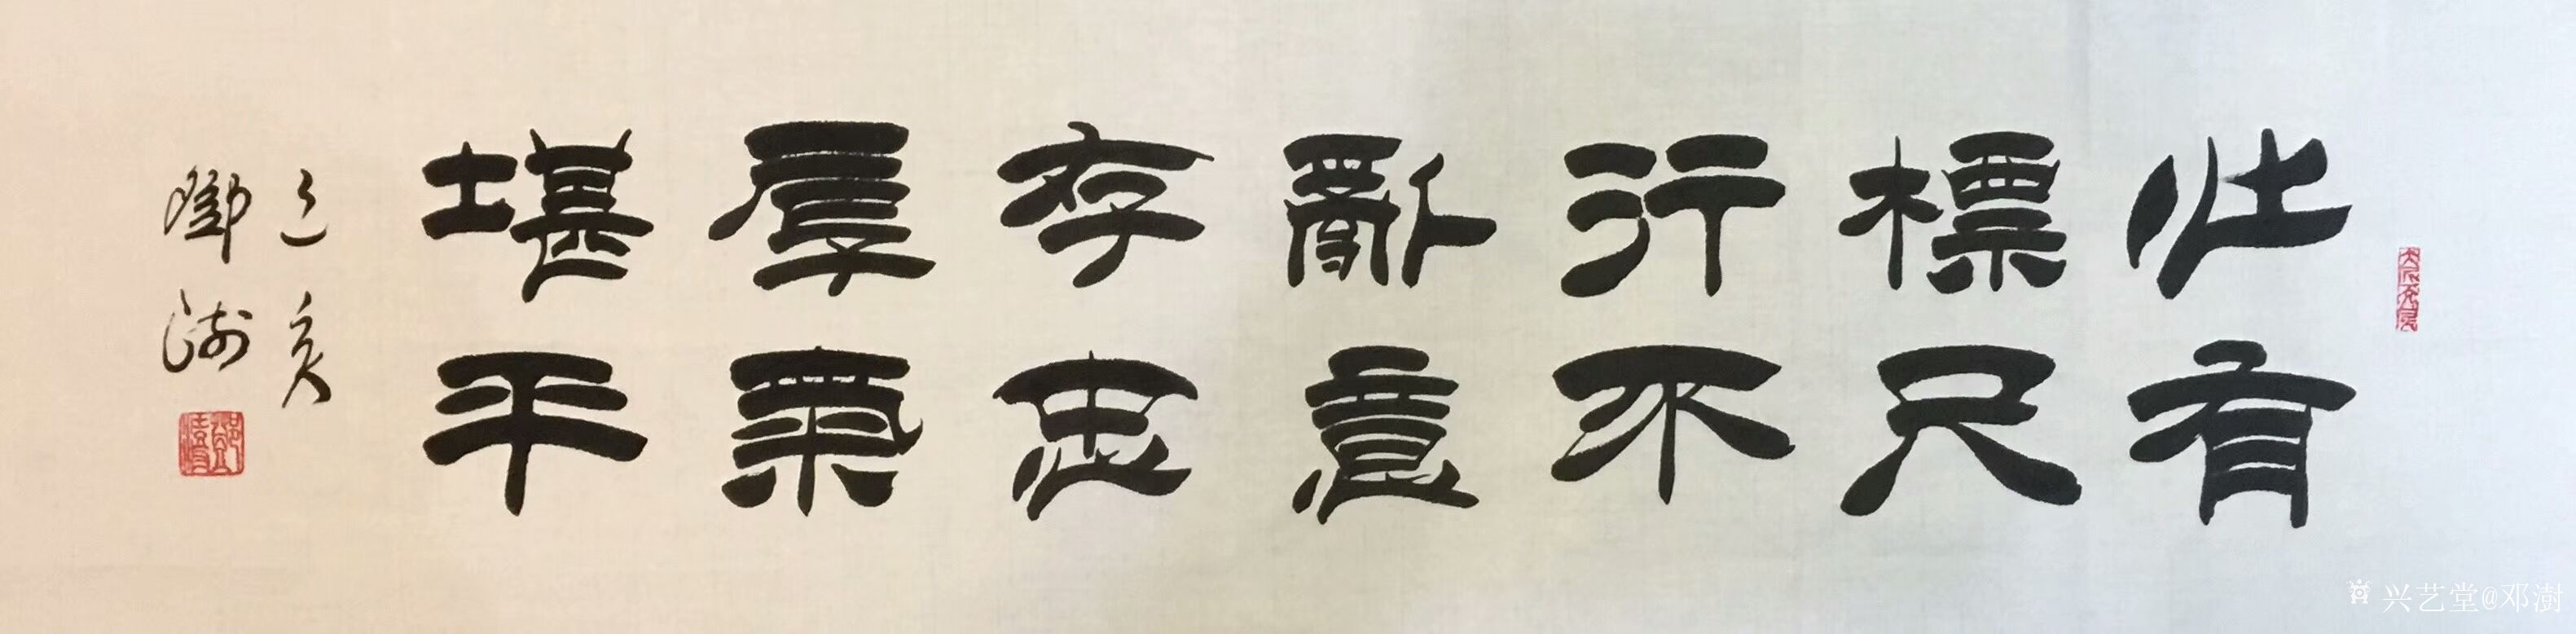 壯有
標尺
行不
亂意
存忠
厚氣
堪平
己亥
鄧澍
兴艺堂@邓澍